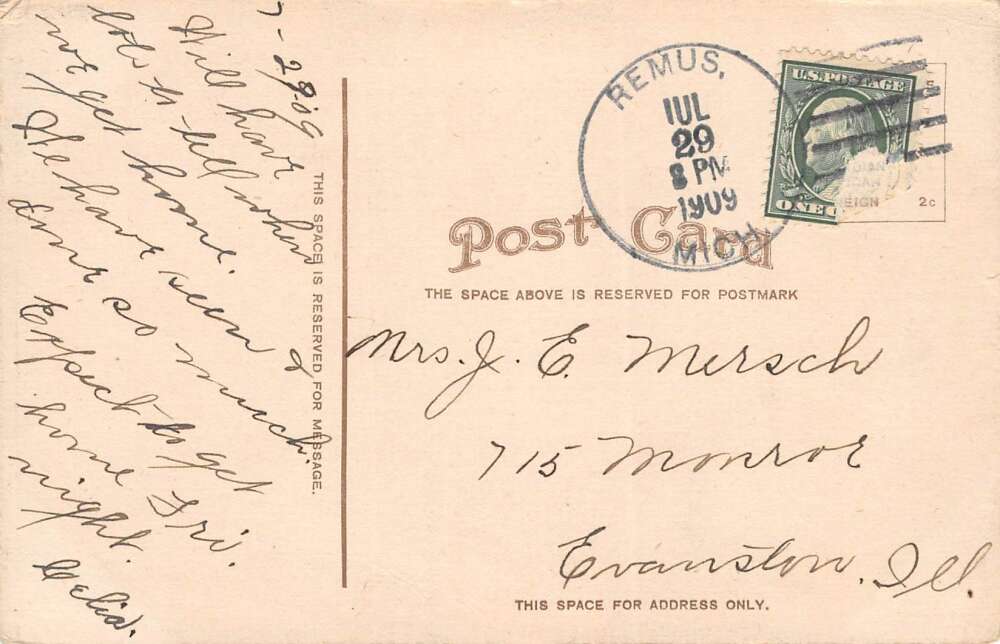 7-29-09
Will have
lots to tell when
we get home.
We have seen &
done so much.
Expect to get
home Fri.
night.
Celia.
THIS SPACE IS RESERVED FOR MESSAGE.
REMUS,
JUL
29
8 PM
1909
MICH
U.S. POSTAGE
ONE
2c
Post Card
THE SPACE ABOVE IS RESERVED FOR POSTMARK
Mrs. J. E. Mersch
715 Monroe
Evanston, Ill
THIS SPACE FOR ADDRESS ONLY.